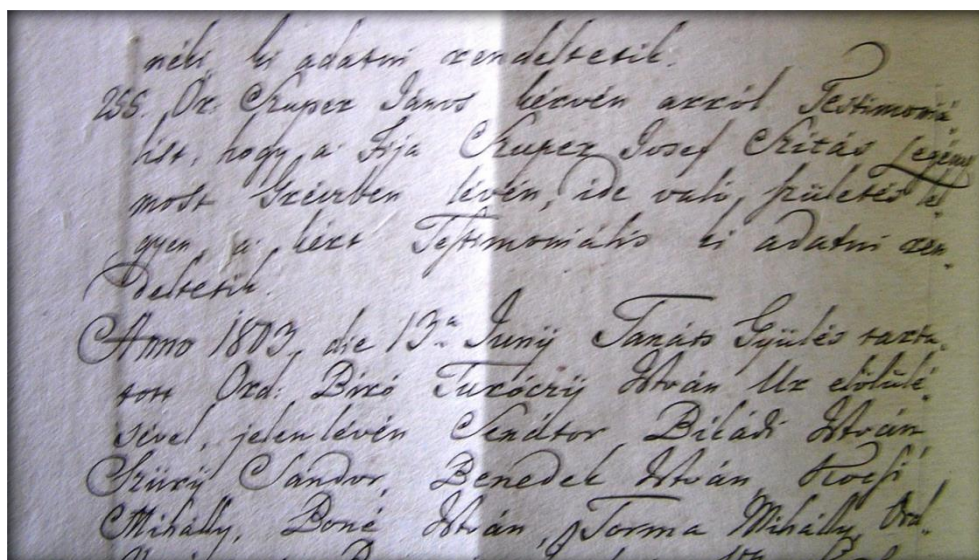 néki ki adatni rendeltetik.
255. Ör. Czuper János kérvén arról Testimoniá
list, hogy a' Fija Czuper Josef Szitás Legény
most Győrben lévén, ide való születés lé-
gyen, a' kért Testimoniális ki adatni ren-
deltetik.
Anno 1803, die 13a Junÿ Tanáts Gyülés tarta-
tott Ord. Biró Turóczÿ István Ur elölülé
sével, jelen lévén Senátor Biládi István
Szürÿ Sandor, Benedek István, Kocsi
Mihálly, Boné István, Torma Mihálly, Ord.